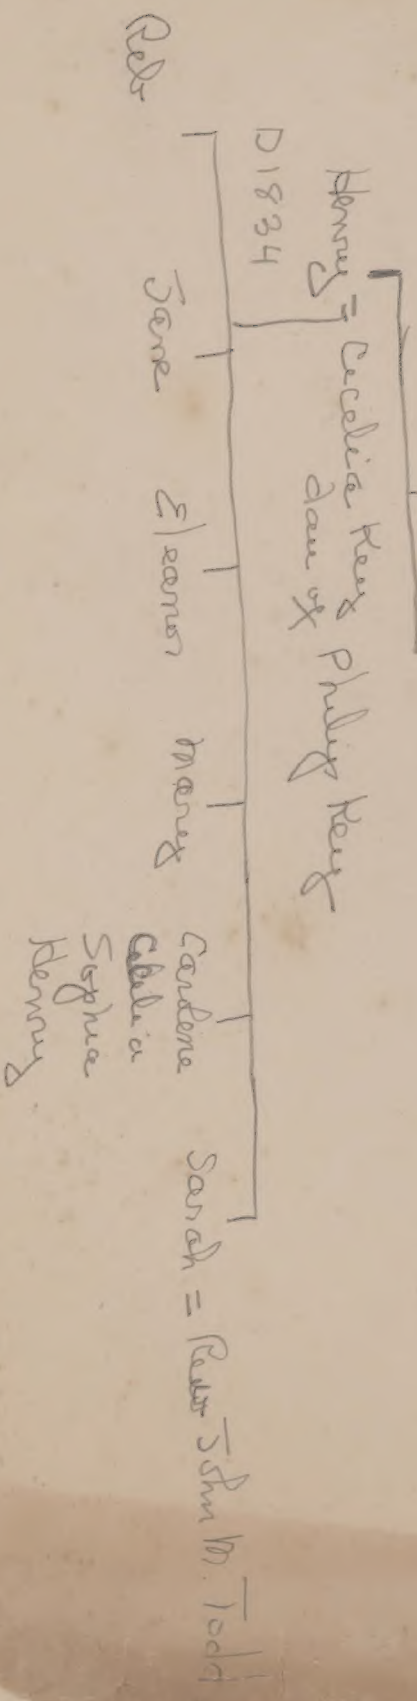 Henry = Cecelia Key
dau of Philip Key
D 1834
Reb
Jane
Eleanor
Mary
Caroline
Cecelia
Sophia
Henry
Sarah = Revr John M. Todd